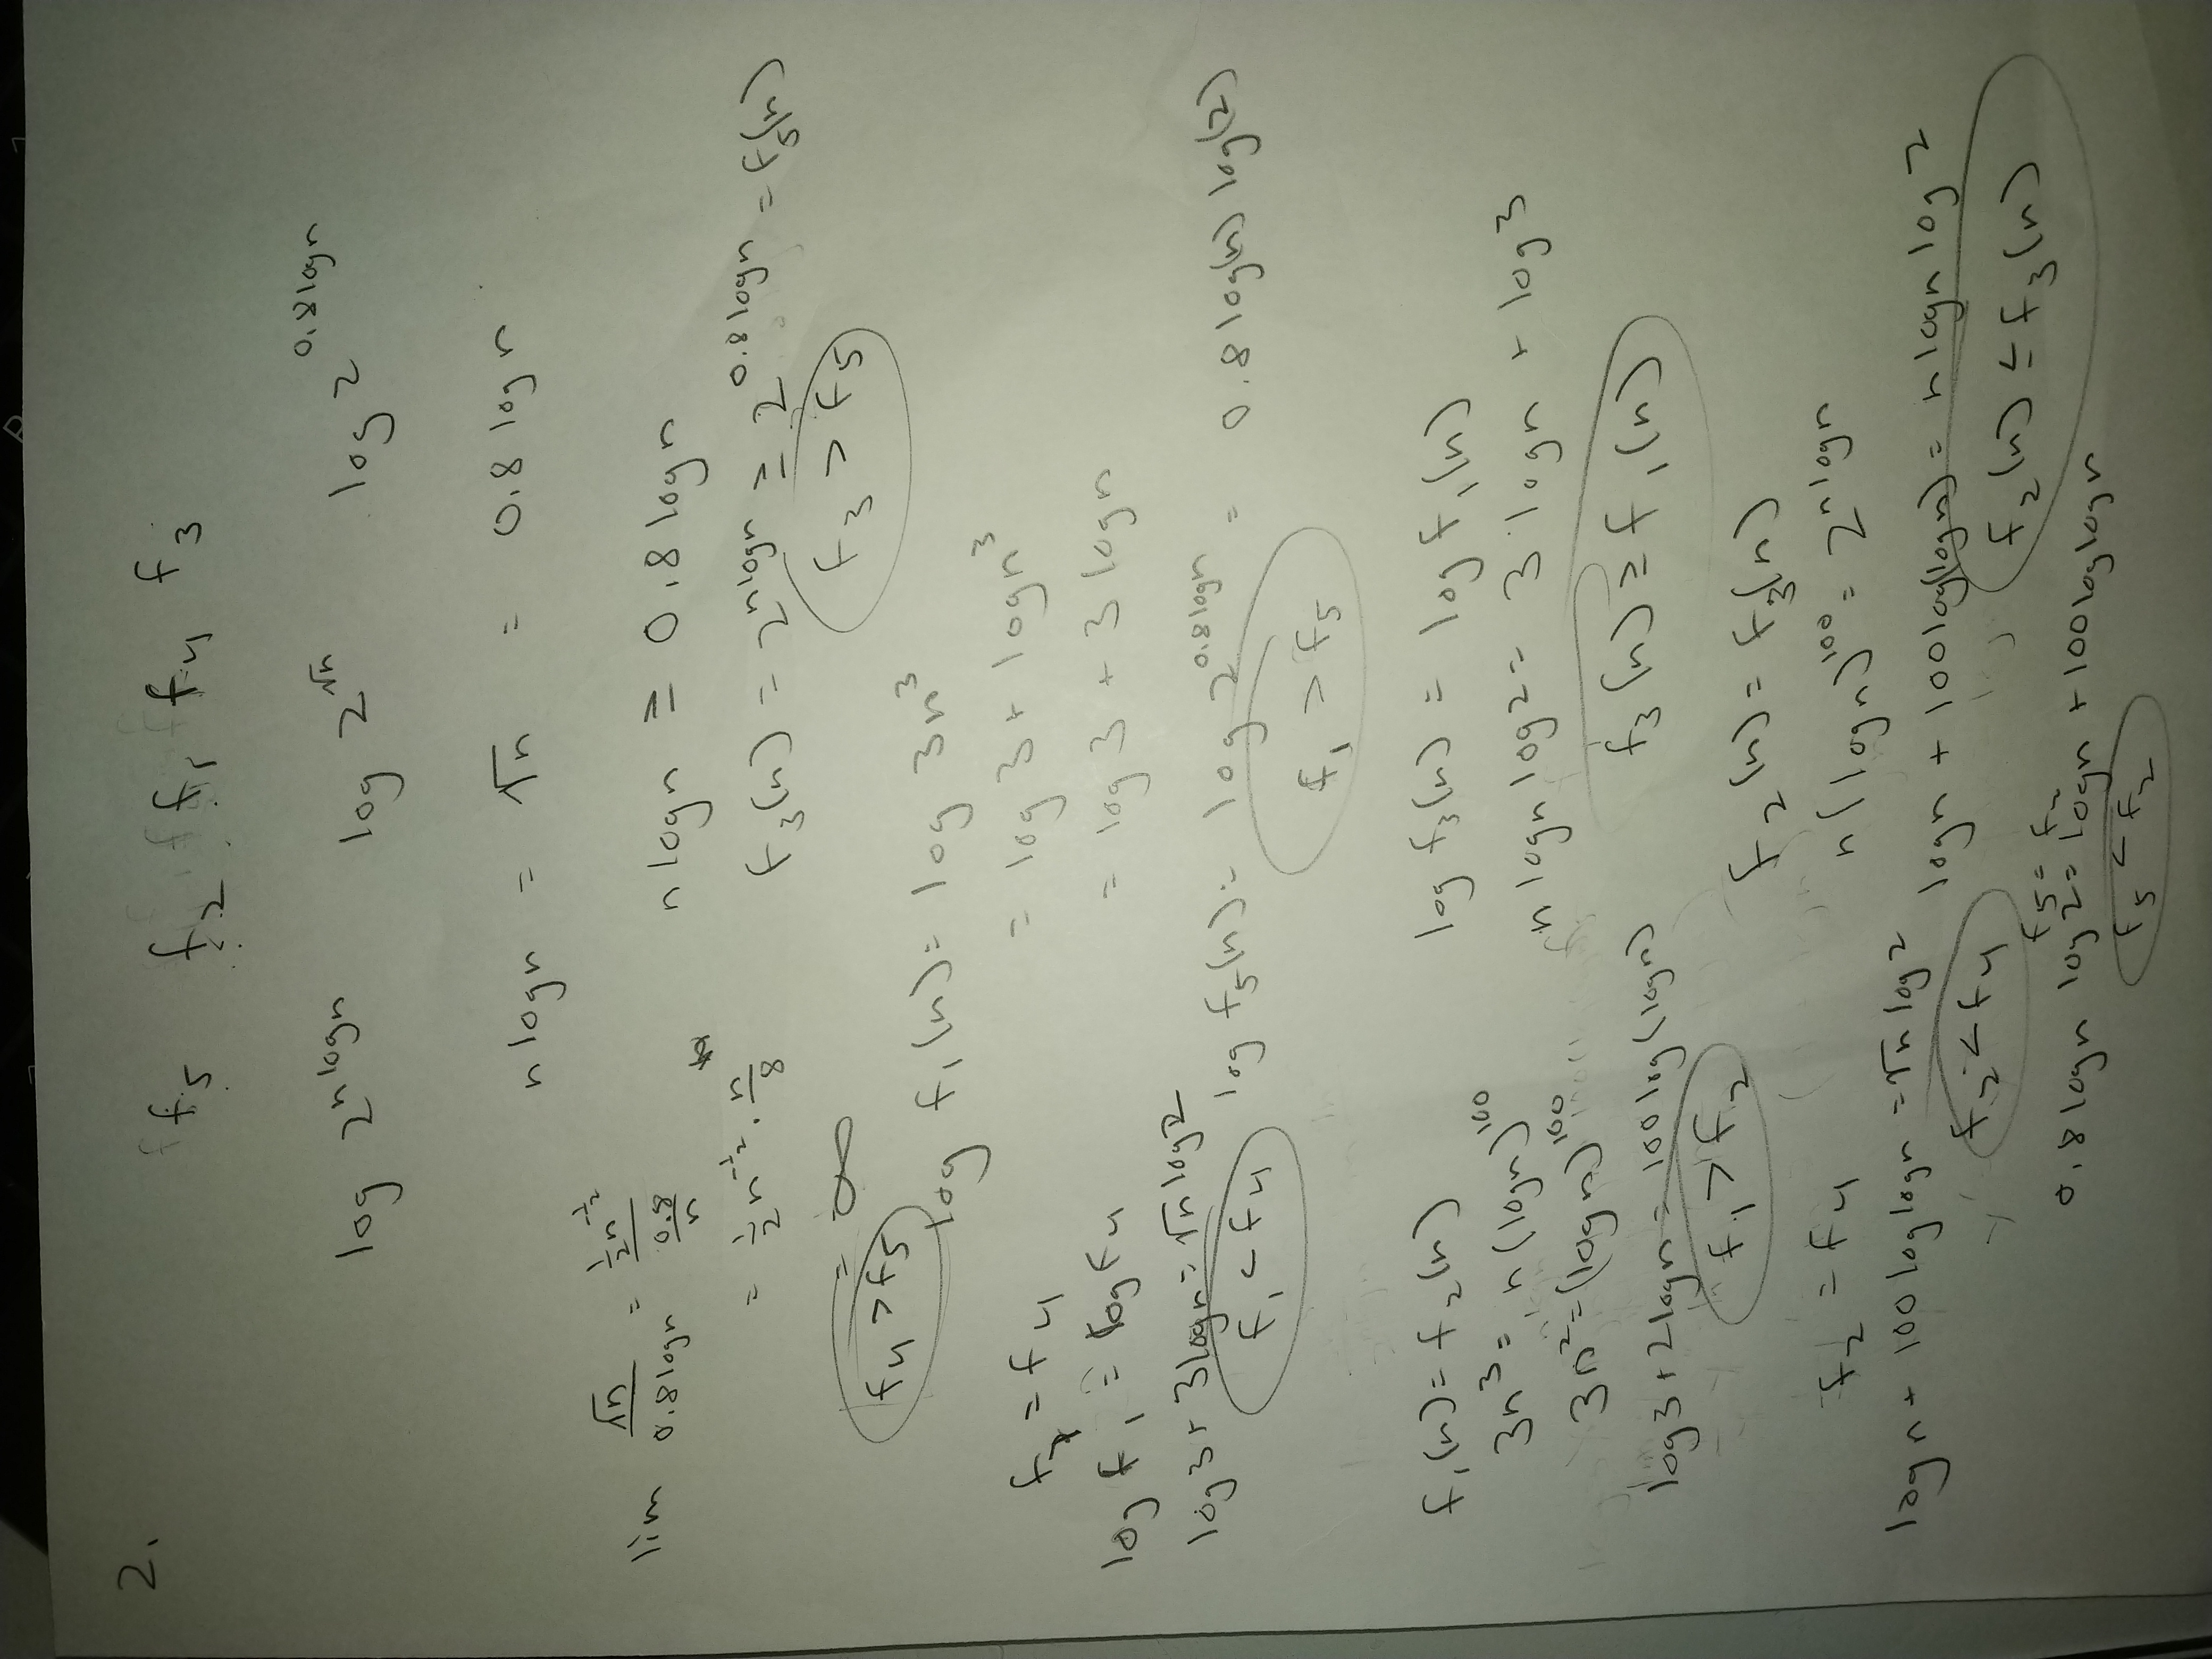 2.
f₅ f₂ f₁ f₄ f₃
log 2^(n log n) log 2^(√n) log 2^(0.8 log n)
n log n = √n = 0.8 log n
lim √n / 0.8 log n = ½n^(-½) / (0.8/n)
= ½n^(-½) · n/8
= ∞
f₄ > f₅
n log n ≥ 0.8 log n
f₃(n) = 2^(n log n) ≥ 2^(0.8 log n) = f₅(n)
f₃ > f₅
log f₁(n) = log 3n³
= log 3 + log n³
= log 3 + 3 log n
f₁ = f₄
log f₁ = log f₄
log 3 + 3 log n = √n log 2
f₁ < f₄
log f₅(n) = log 2^(0.8 log n) = 0.8 log(n) log(2)
f₁ > f₅
f₁(n) = f₂(n)
3n³ = n(log n)^100
3n² = (log n)^100
log 3 + 2 log n = 100 log(log n)
f₁ > f₂
log f₃(n) = log f₁(n)
n log n log 2 = 3 log n + log 3
f₃(n) ≥ f₁(n)
f₂ = f₄
log n + 100 log log n = √n log 2
f₂ < f₄
f₂(n) = f₃(n)
n(log n)^100 = 2^(n log n)
log n + 100 log(log n) = n log n log 2
f₂(n) ≤ f₃(n)
f₅ = f₂
0.8 log n log 2 = log n + 100 log log n
f₅ < f₂